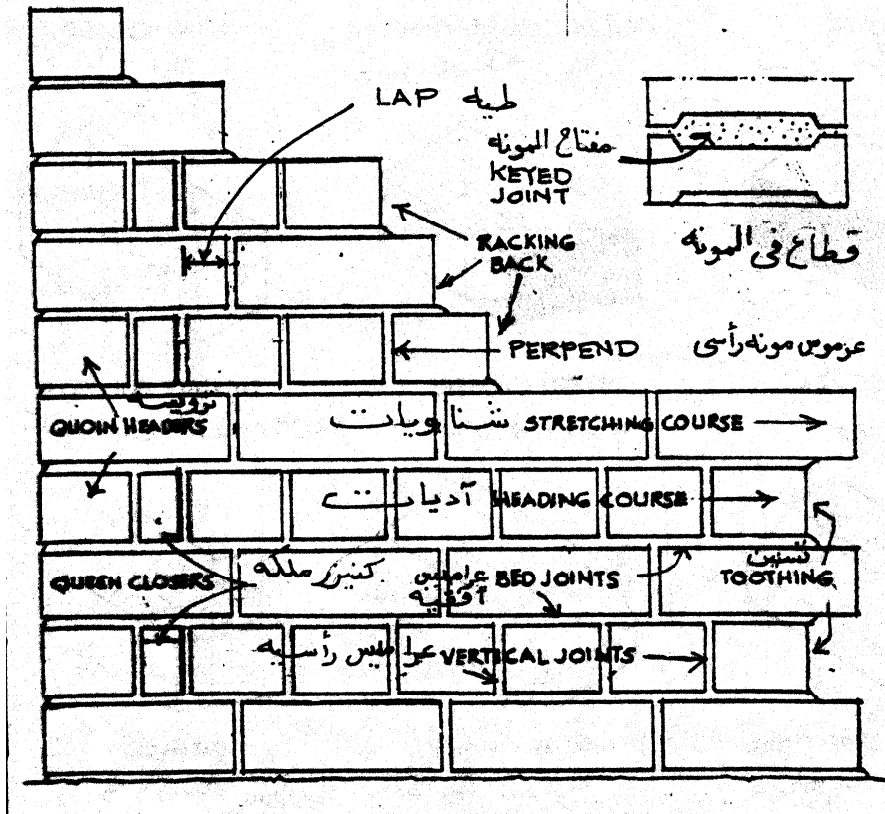 LAP طيه
مفتاح المونه
KEYED
JOINT
قطاع فى المونه
RACKING
BACK
PERPEND
عرموس مونه رأسى
ترويسه
QUOIN HEADERS
شناويات STRETCHING COURSE
آديات HEADING COURSE
QUEEN CLOSERS
كنيزر ملكه
عراميس BED JOINTS
آفقيه
تسنين
TOOTHING
عراميس رأسيه VERTICAL JOINTS